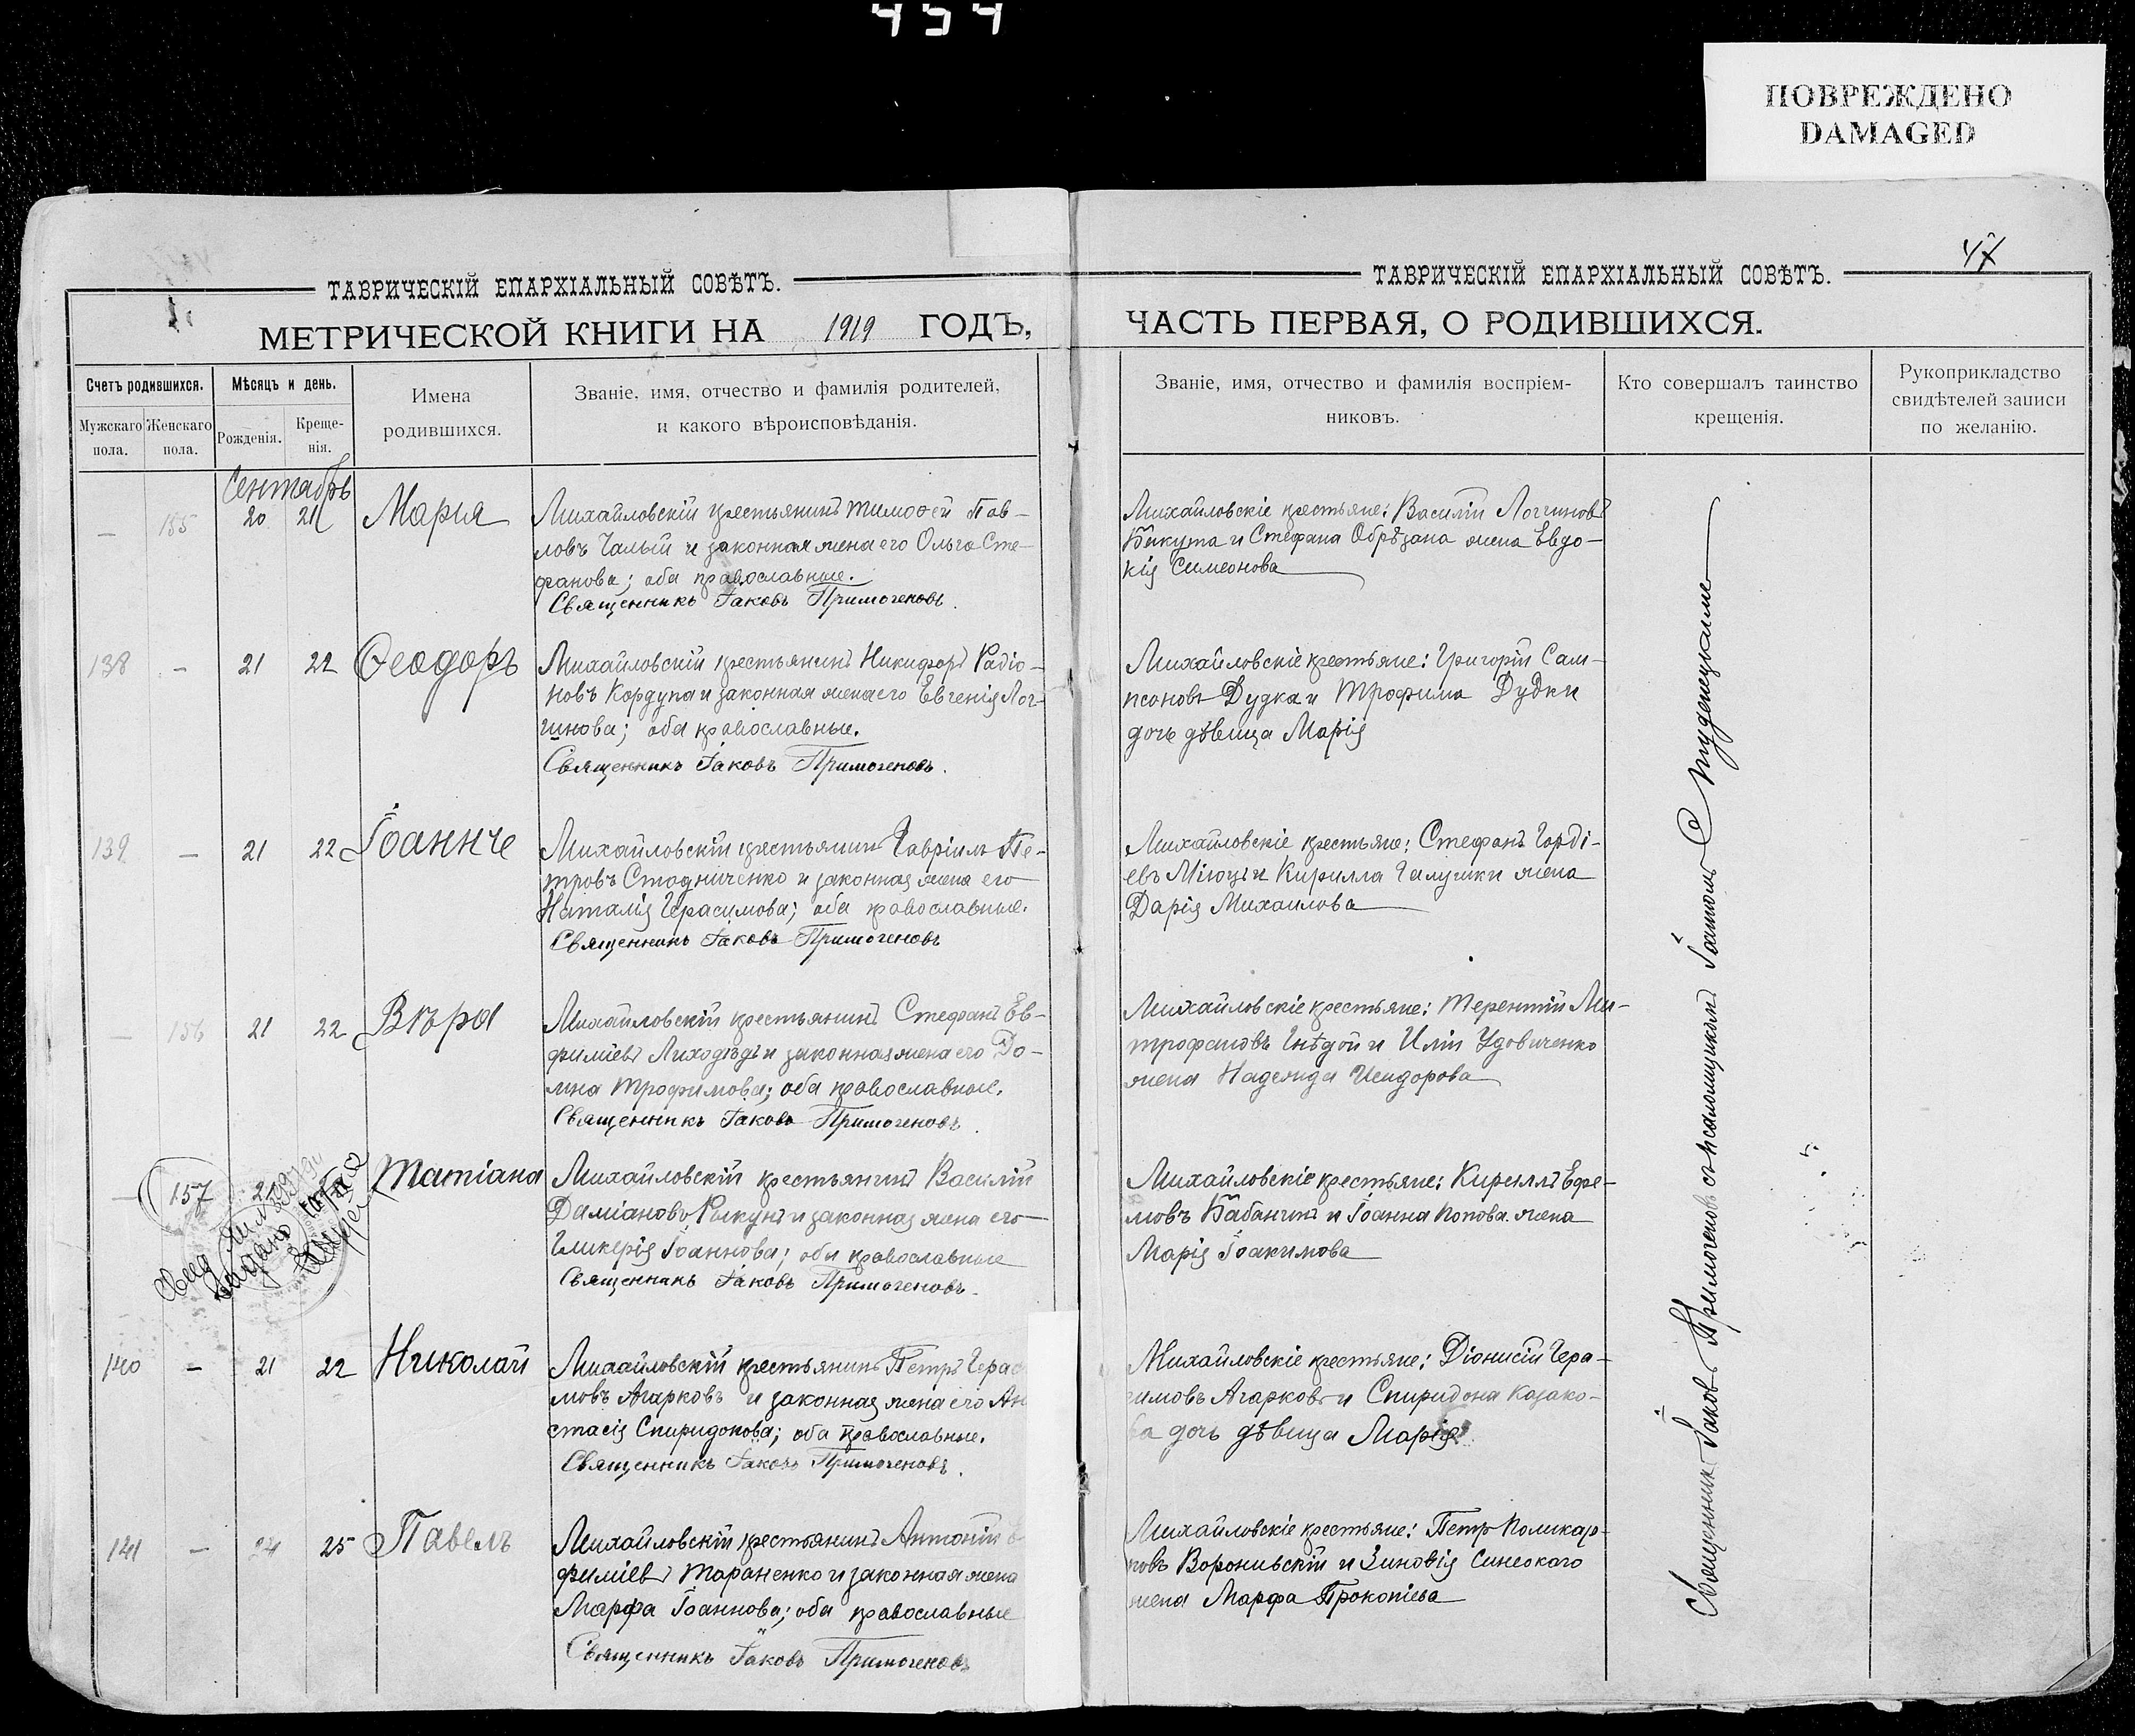 454
ПОВРЕЖДЕНО
DAMAGED
47
ТАВРИЧЕСКІЙ ЕПАРХІАЛЬНЫЙ СОВѢТЪ.
МЕТРИЧЕСКОЙ КНИГИ НА 1919 ГОДЪ,
Счетъ родившихся.
Мѣсяцъ и день.
Имена
родившихся.
Званіе, имя, отчество и фамилія родителей,
и какого вѣроисповѣданія.
Мужскаго
пола.
Женскаго
пола.
Рожденія.
Креще-
нія.
Сентябрь
— 155 20 21 Мария
Михайловскій крестьянинъ Тимоѳей Пав-
ловъ Чалый и законная жена его Ольга Сте-
фанова; оба православные.
Священникъ Іаковъ Примогеновъ.
138 — 21 22 Ѳеодоръ
Михайловскій крестьянинъ Никифоръ Радіо-
новъ Кордупа и законная жена его Евгенія Лог-
гинова; оба православные.
Священникъ Іаковъ Примогеновъ.
139 — 21 22 Іоанн
Михайловскій крестьянинъ Гавріилъ Пе-
тровъ Стадниченко и законная жена его
Наталія Герасимова; оба православные.
Священникъ Іаковъ Примогеновъ
— 156 21 22 Вѣра
Михайловскій крестьянинъ Стефанъ Ев-
фиміевъ Лиходѣдъ и законная жена его До-
мна Трофимова; оба православные.
Священникъ Іаковъ Примогеновъ.
— 157 21 Татіана
Михайловскій крестьянинъ Василій
Даміановъ и законная жена его
Гликерія Іоаннова; оба православные
Священникъ Іаковъ Примогеновъ.
140 — 21 22 Николай
Михайловскій крестьянинъ Петръ Гера
мовъ Агарковъ и законная жена его Ан
стасія Спиридонова; оба православные.
Священникъ Іаковъ Примогеновъ.
141 — 24 25 Павелъ
Михайловскій крестьянинъ Антоній
фиміевъ Тараненко и законная жена
Марфа Іоаннова; оба православные
Священникъ Іаковъ Примогеновъ
ТАВРИЧЕСКІЙ ЕПАРХІАЛЬНЫЙ СОВѢТЪ.
ЧАСТЬ ПЕРВАЯ, О РОДИВШИХСЯ.
Званіе, имя, отчество и фамилія воспріем-
никовъ.
Кто совершалъ таинство
крещенія.
Рукоприкладство
свидѣтелей записи
по желанію.
Михайловскіе крестьяне: Василій Логгиновъ
Бикута и Стефана Обрѣзана жена Евдо-
кія Симеонова
Михайловскіе крестьяне: Григорій Сам-
псоновъ Дудка и Трофима Дудки
дочь дѣвица Марія
Михайловскіе крестьяне: Стефанъ Горді-
евъ Міюцъ и Кирилла Галушки жена
Дарія Михаилова
Михайловскіе крестьяне: Терентій Ми-
трофановъ Гнѣдой и Иліи Удовиченко
жена Надежда Исидорова
Михайловскіе крестьяне: Кириллъ Ефре-
мовъ Бабанинъ и Іоанна Попова жена
Марія Іоакимова
Михайловскіе крестьяне: Діонисій Гера-
симовъ Агарковъ и Спиридона Казако-
ва дочь дѣвица Марія
Михайловскіе крестьяне: Петръ Поликар-
повъ Воронивскій и Зиновія Синеокаго
жена Марфа Прокопіева
Священникъ Іаковъ Примогеновъ съ псаломщикомъ Іоанномъ Студенецкимъ